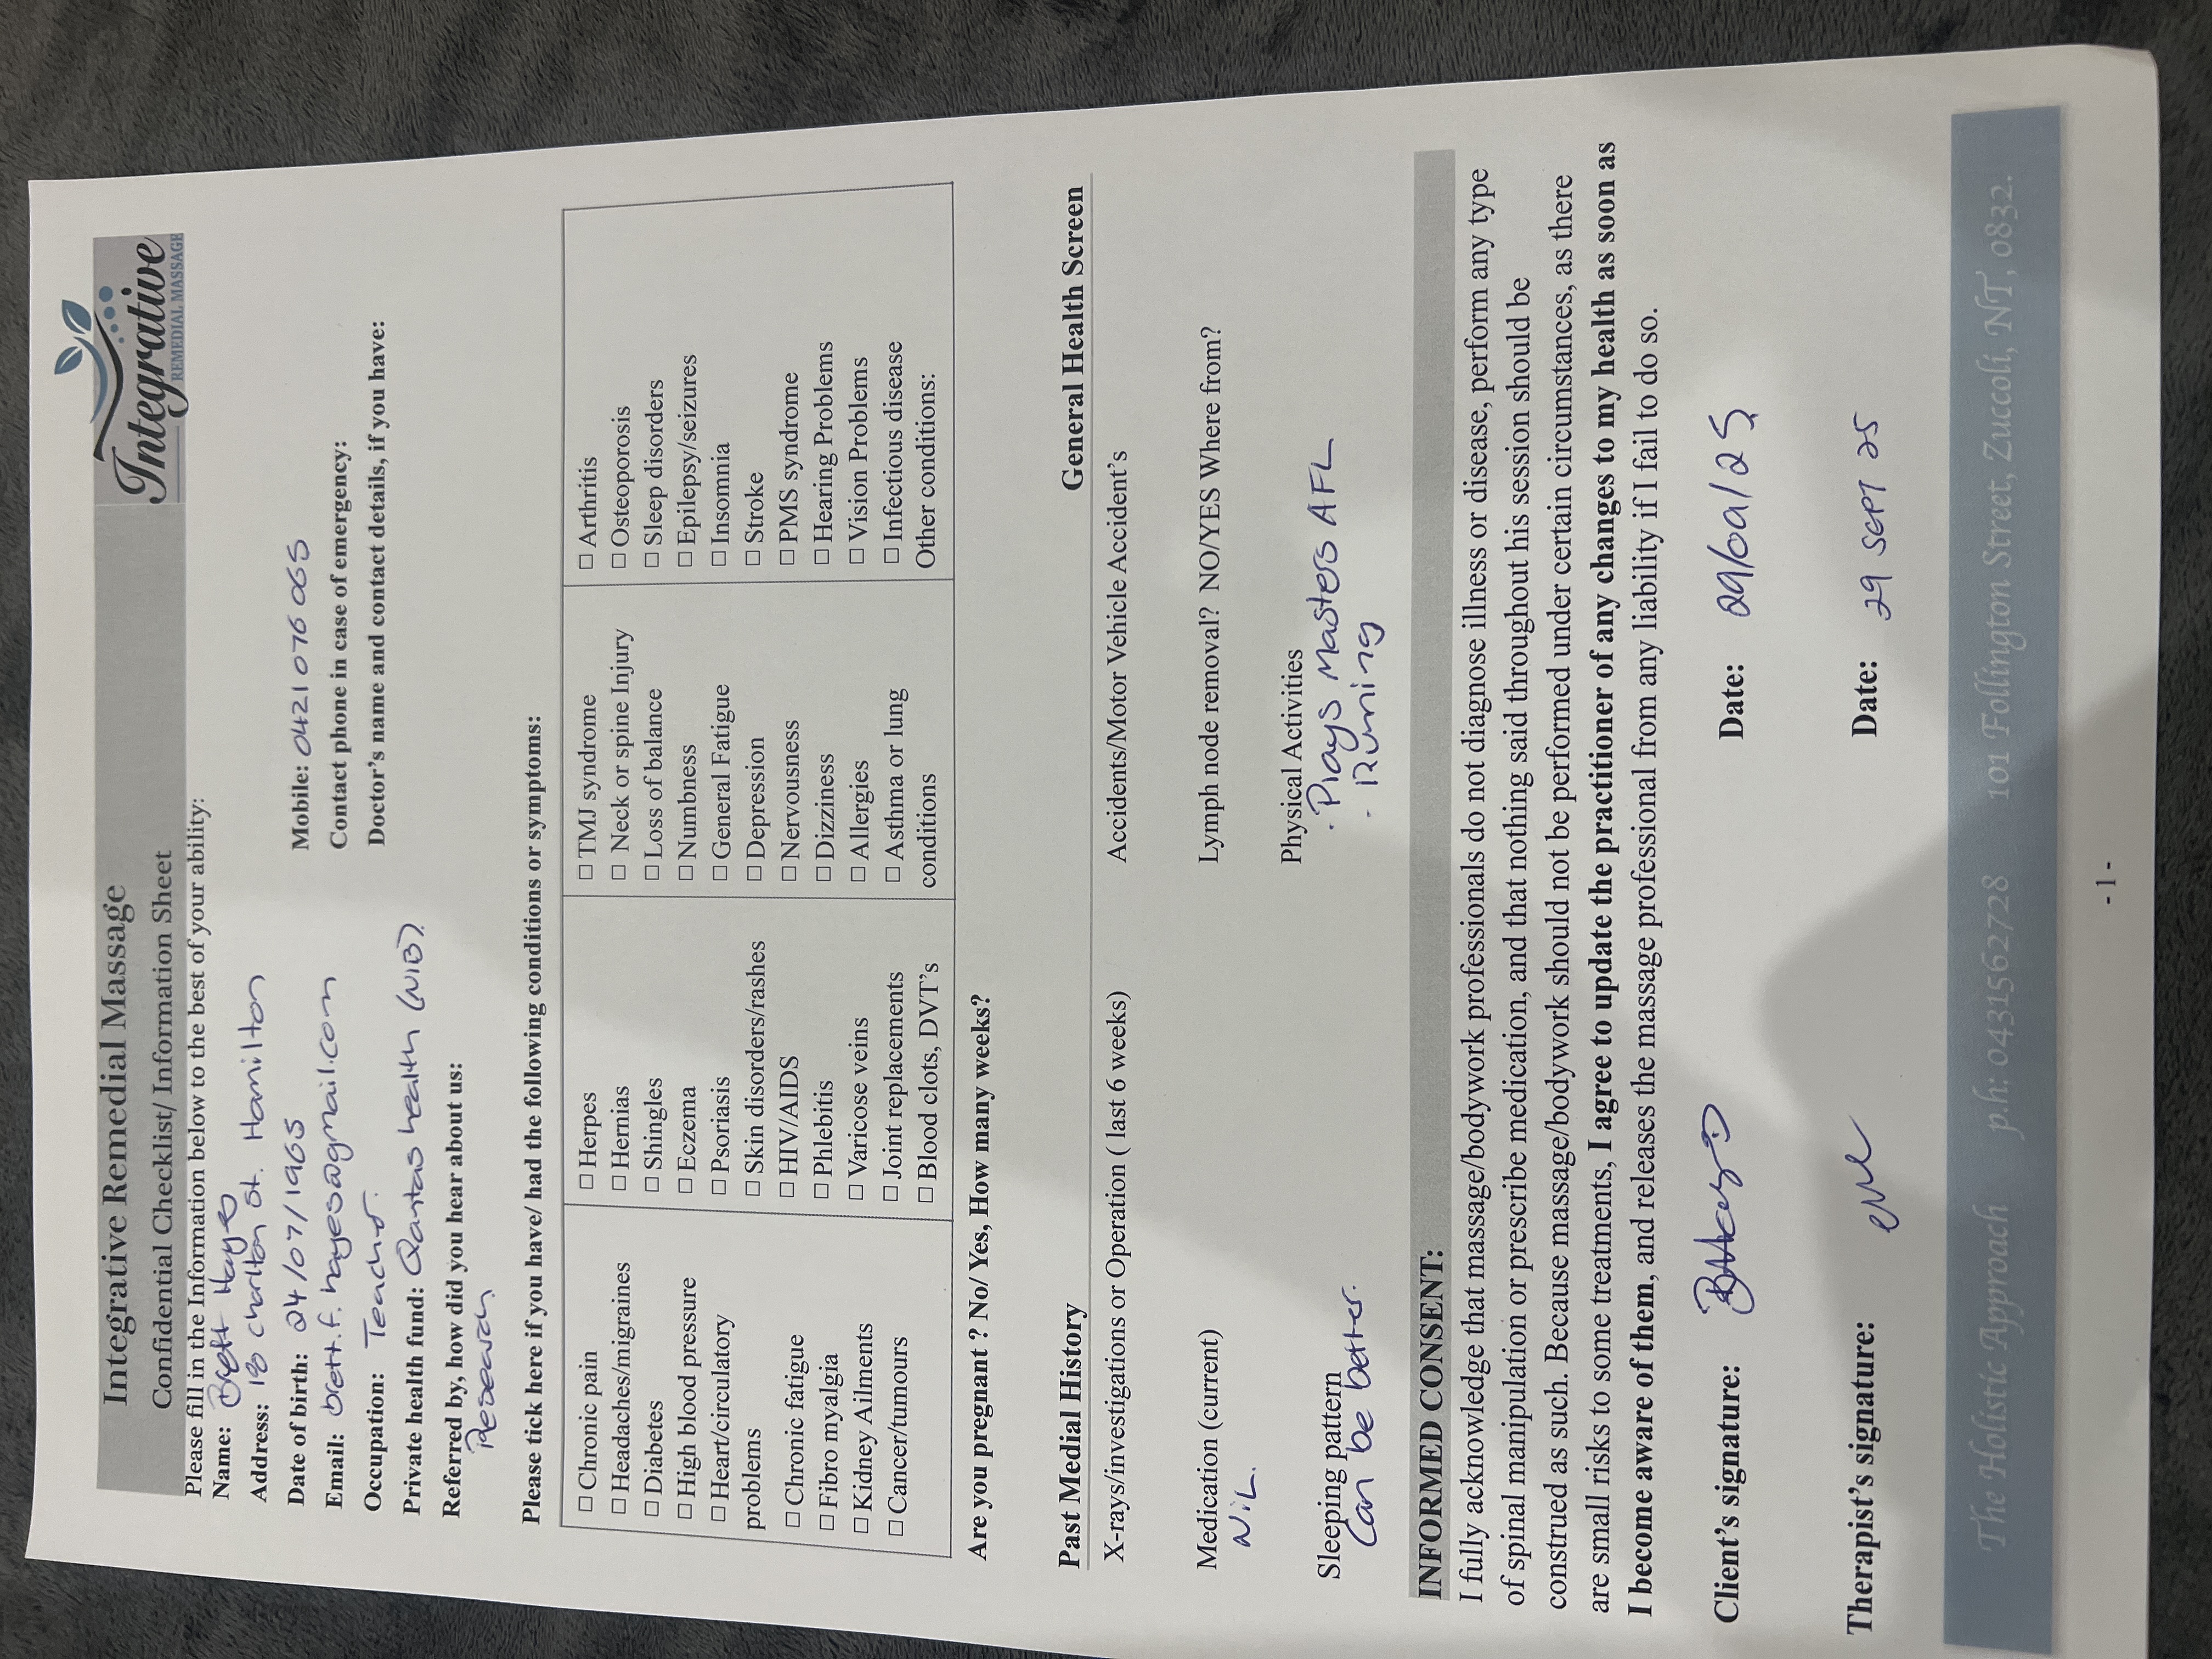 Integrative Remedial Massage
Confidential Checklist/ Information Sheet
Integrative
REMEDIAL MASSAGE
Please fill in the Information below to the best of your ability:
Name: Brett Hayes
Address: 18 charlton St. Hamilton
Date of birth: 24/07/1965
Mobile: 0421 076 065
Email: brett.f.hayes@gmail.com
Contact phone in case of emergency:
Occupation: Teacher.
Doctor's name and contact details, if you have:
Private health fund: Qantas health (NIB).
Referred by, how did you hear about us:
Research
Please tick here if you have/ had the following conditions or symptoms:
☐ Chronic pain
☐ Headaches/migraines
☐ Diabetes
☐ High blood pressure
☐ Heart/circulatory
problems
☐ Chronic fatigue
☐ Fibro myalgia
☐ Kidney Ailments
☐ Cancer/tumours
☐ Herpes
☐ Hernias
☐ Shingles
☐ Eczema
☐ Psoriasis
☐ Skin disorders/rashes
☐ HIV/AIDS
☐ Phlebitis
☐ Varicose veins
☐ Joint replacements
☐ Blood clots, DVT's
☐ TMJ syndrome
☐ Neck or spine Injury
☐ Loss of balance
☐ Numbness
☐ General Fatigue
☐ Depression
☐ Nervousness
☐ Dizziness
☐ Allergies
☐ Asthma or lung
conditions
☐ Arthritis
☐ Osteoporosis
☐ Sleep disorders
☐ Epilepsy/seizures
☐ Insomnia
☐ Stroke
☐ PMS syndrome
☐ Hearing Problems
☐ Vision Problems
☐ Infectious disease
Other conditions:
Are you pregnant ? No/ Yes, How many weeks?
Past Medial History
General Health Screen
X-rays/investigations or Operation ( last 6 weeks)
Accidents/Motor Vehicle Accident's
Medication (current)
NiL.
Lymph node removal? NO/YES Where from?
Sleeping pattern
Can be better.
Physical Activities
· Plays Masters AFL
· Running
INFORMED CONSENT:
I fully acknowledge that massage/bodywork professionals do not diagnose illness or disease, perform any type
of spinal manipulation or prescribe medication, and that nothing said throughout his session should be
construed as such. Because massage/bodywork should not be performed under certain circumstances, as there
are small risks to some treatments, I agree to update the practitioner of any changes to my health as soon as
I become aware of them, and releases the massage professional from any liability if I fail to do so.
Client's signature:
Date: 29/09/25
Therapist's signature:
Date: 29 SEPT 25
The Holistic Approach p.h: 0431562728 101 Follington Street, Zuccoli, NT, 0832.
- 1 -